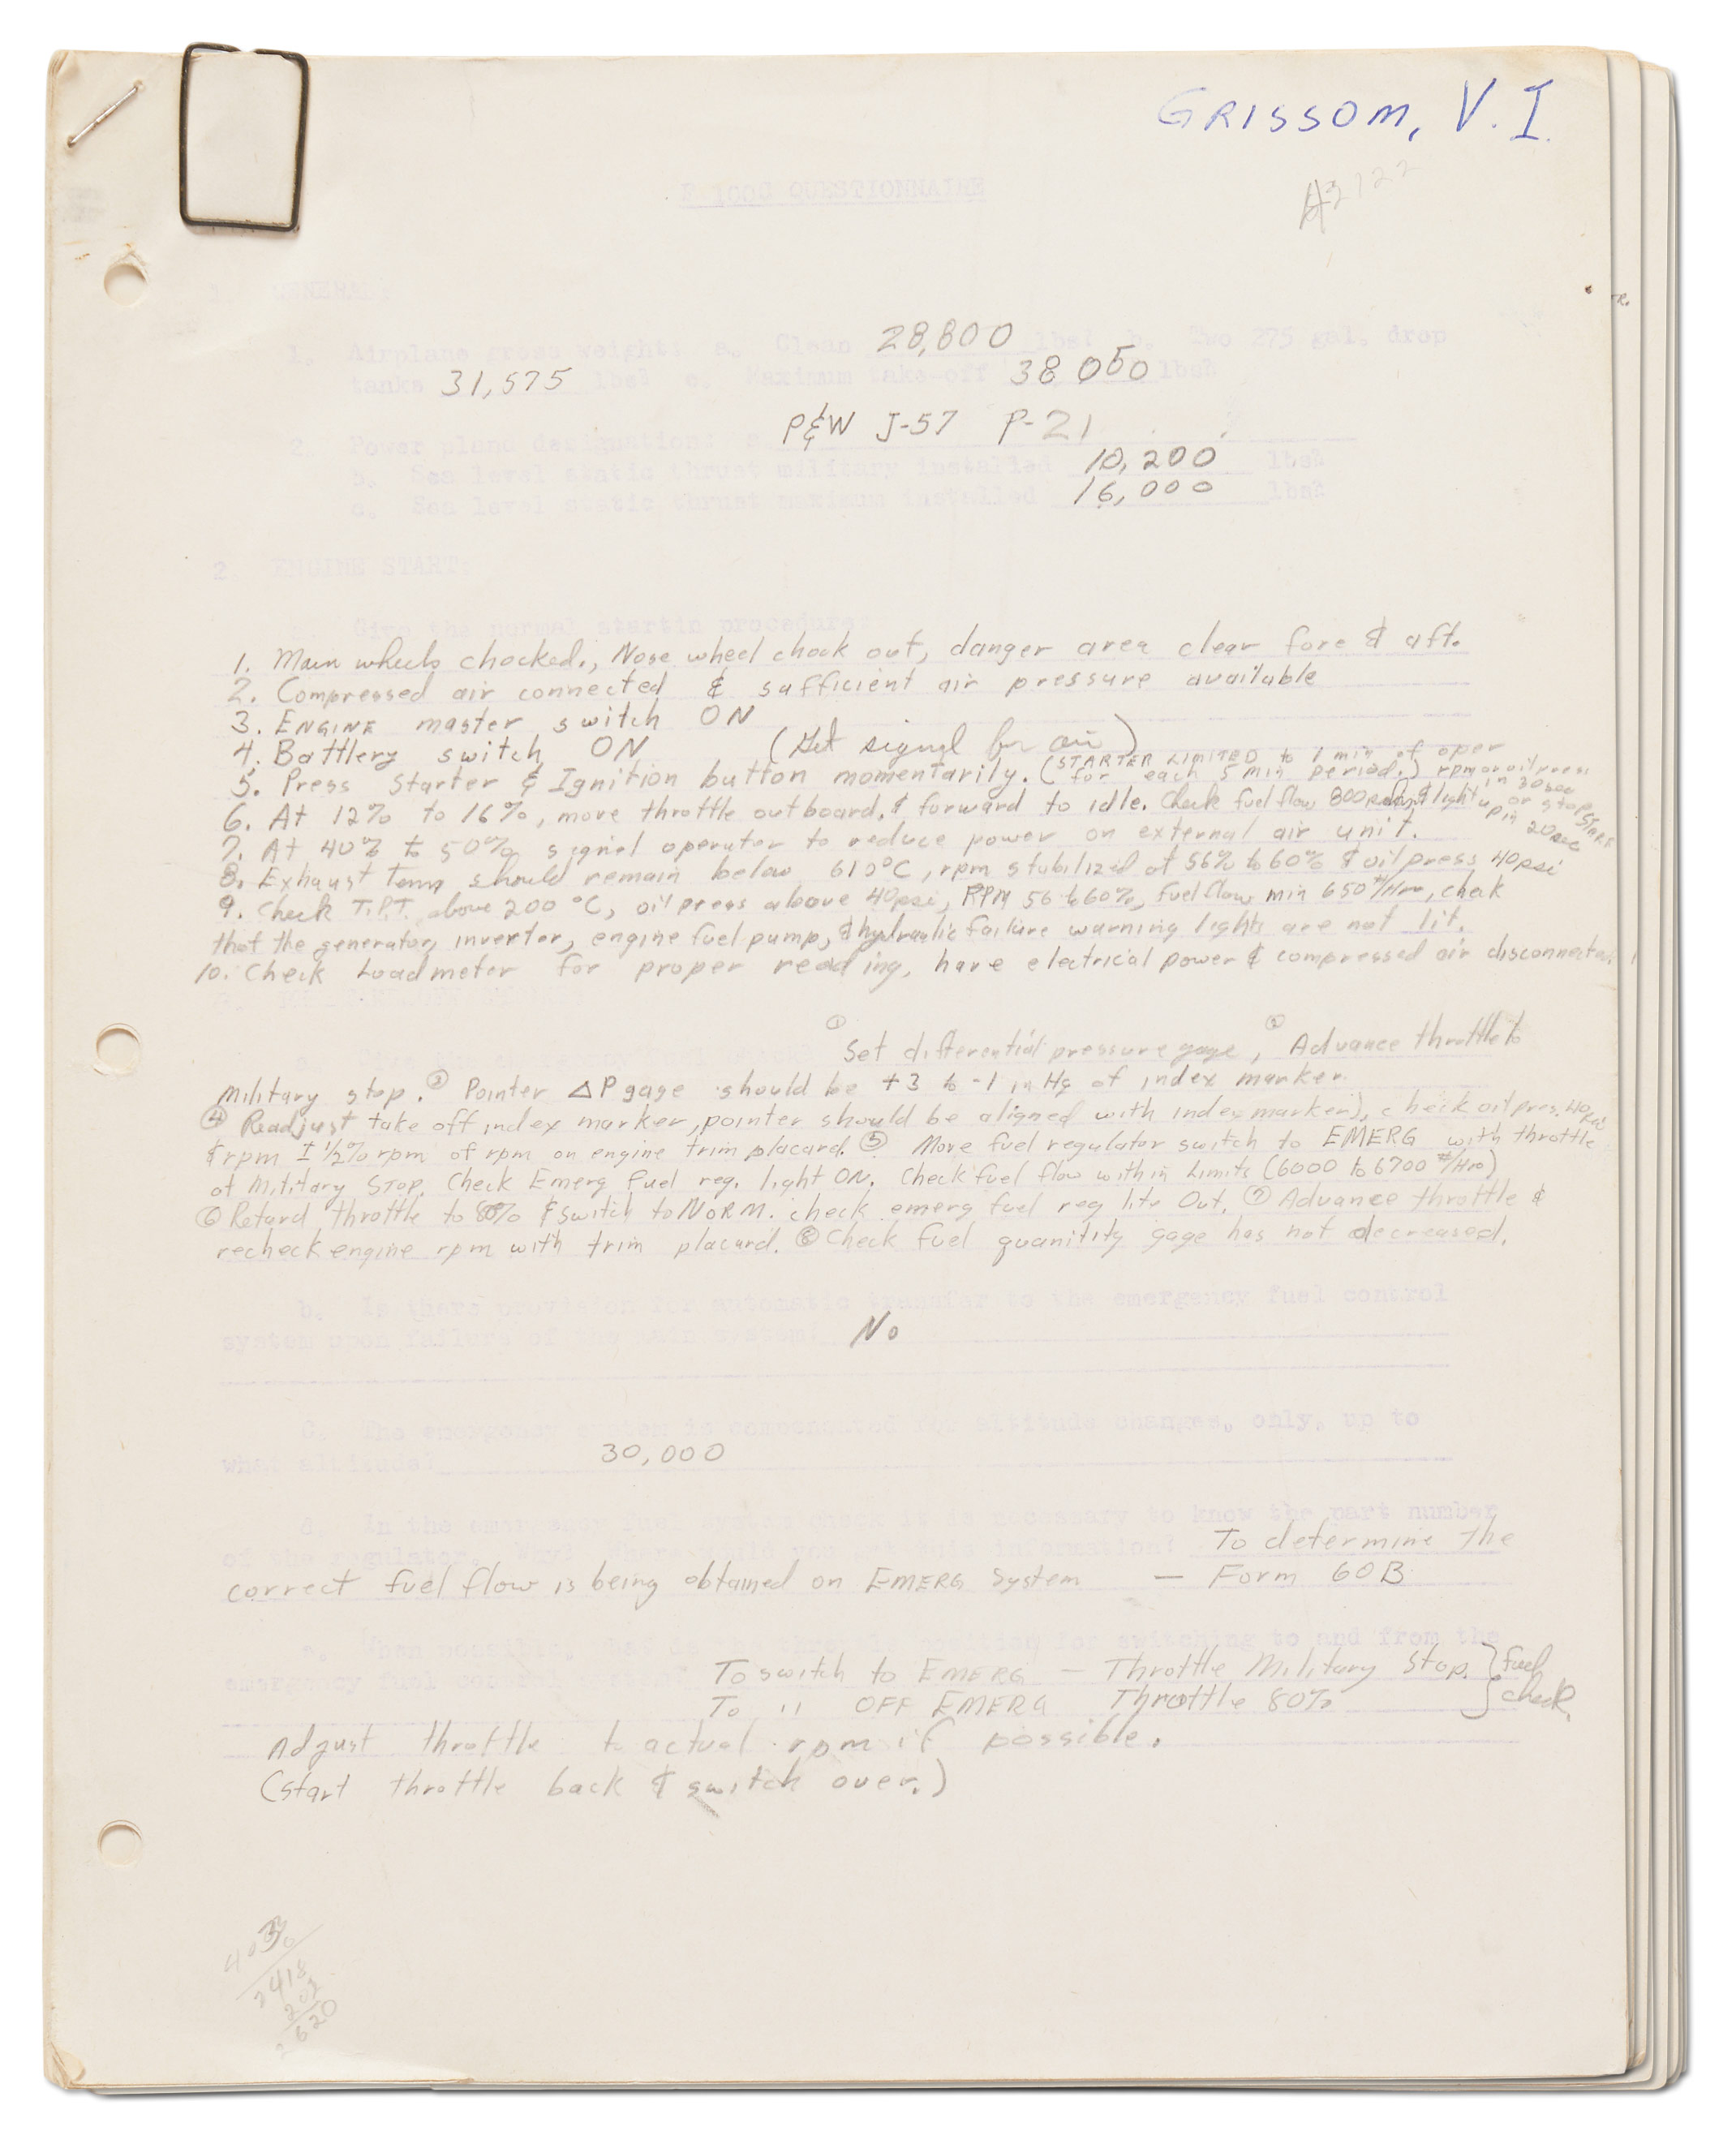 GRISSOM, V. I.
F 100C QUESTIONNAIRE
1. GENERAL:
1. Airplane gross weight: a. Clean 28,800 lbs: b. Two 275 gal. drop
tanks 31,575 lbs: c. Maximum take-off 38 050 lbs:
2. Power plant designation: a. P&W J-57 P-21
b. Sea level static thrust military installed 10,200 lbs:
c. Sea level static thrust maximum installed 16,000 lbs:
2. ENGINE START:
Give the normal startin procedure:
1. Main wheels chocked., Nose wheel chock out, danger area clear fore & aft.
2. Compressed air connected & sufficient air pressure available
3. ENGINE master switch ON
4. Battlery switch ON (Get signal for air)
5. Press Starter & Ignition button momentarily. (STARTER LIMITED to 1 min of oper for each 5 min period.) rpm or oil press in 30 sec or stop START
6. At 12% to 16%, move throttle outboard, & forward to idle. Check fuel flow 800 & light up in 20 sec
7. At 40% to 50% signel operator to reduce power on external air unit.
8. Exhaust Temp should remain below 610°C, rpm stabilized at 56% to 60% & oil press 40psi
9. Check T.P.T. above 200°C, oil press above 40psi, RPM 56 to 60%, fuel flow min 650 #/Hr, check
that the generator, inverter, engine fuel pump, & hydraulic failure warning lights are not lit.
10. Check Loadmeter for proper reading, have electrical power & compressed air disconnected
① Set differential pressure gage, ② Advance throttle to
Military stop. ③ Pointer △P gage should be +3 to -1 in Hg of index marker.
④ Readjust take off index marker, pointer should be aligned with index marker), check oil pres. 40
& rpm ± 1/2% rpm of rpm on engine trim placard. ⑤ Move fuel regulator switch to EMERG with throttle
at Military STOP. Check Emerg Fuel reg. light ON. Check fuel flow within Limits (6000 to 6700 #/Hr)
⑥ Retard throttle to 80% & switch to NORM. check emerg fuel reg lite Out. ⑦ Advance throttle &
recheck engine rpm with trim placard. ⑧ Check fuel quanitity gage has not decreased.
b. Is there provision for automatic transfer to the emergency fuel control
system upon failure of the main system? No
C. The emergency system is compensated for altitude changes, only, up to
what altitude? 30,000
d. In the emergency fuel system check it is necessary to know the part number
of the regulator. Why? Where would you get this information? To determine the
correct fuel flow is being obtained on EMERG System — Form 60B
e. When possible, what is the throttle position for switching to and from the
emergency fuel control system? To switch to EMERG — Throttle Military Stop. } fuel
To " OFF EMERG Throttle 80% } check.
Adjust throttle to actual rpm if possible.
(start throttle back & switch over.)
2418
202
2620